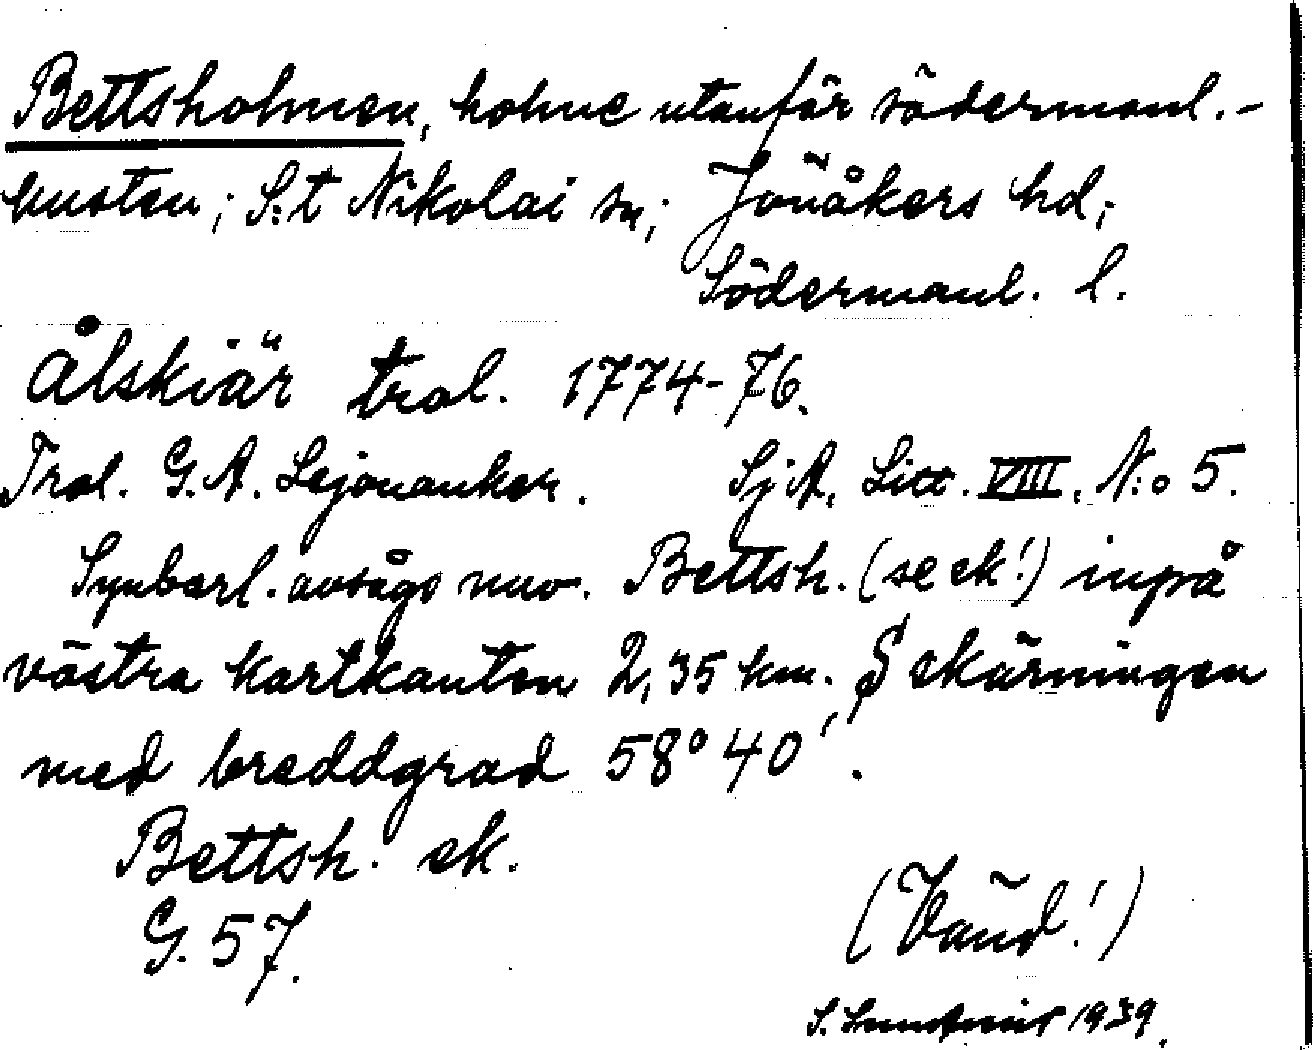 Bettsholmen, holme utanför södermanl.-
kusten; S:t Nikolai sn; Jönåkers hd;
Södermanl. l.
Ålskiär trol. 1774-76.
Trol. G.A. Lejonanker. SjA, Litt. VIII, N:o 5.
Synbarl. avsågs nuv. Bettsh. (se ek!) inpå
västra kartkanten 2,35 km. S skärningen
med breddgrad 58° 40'.
Bettsh. ek.
G. 57.
(Vänd!)
S. 1939.